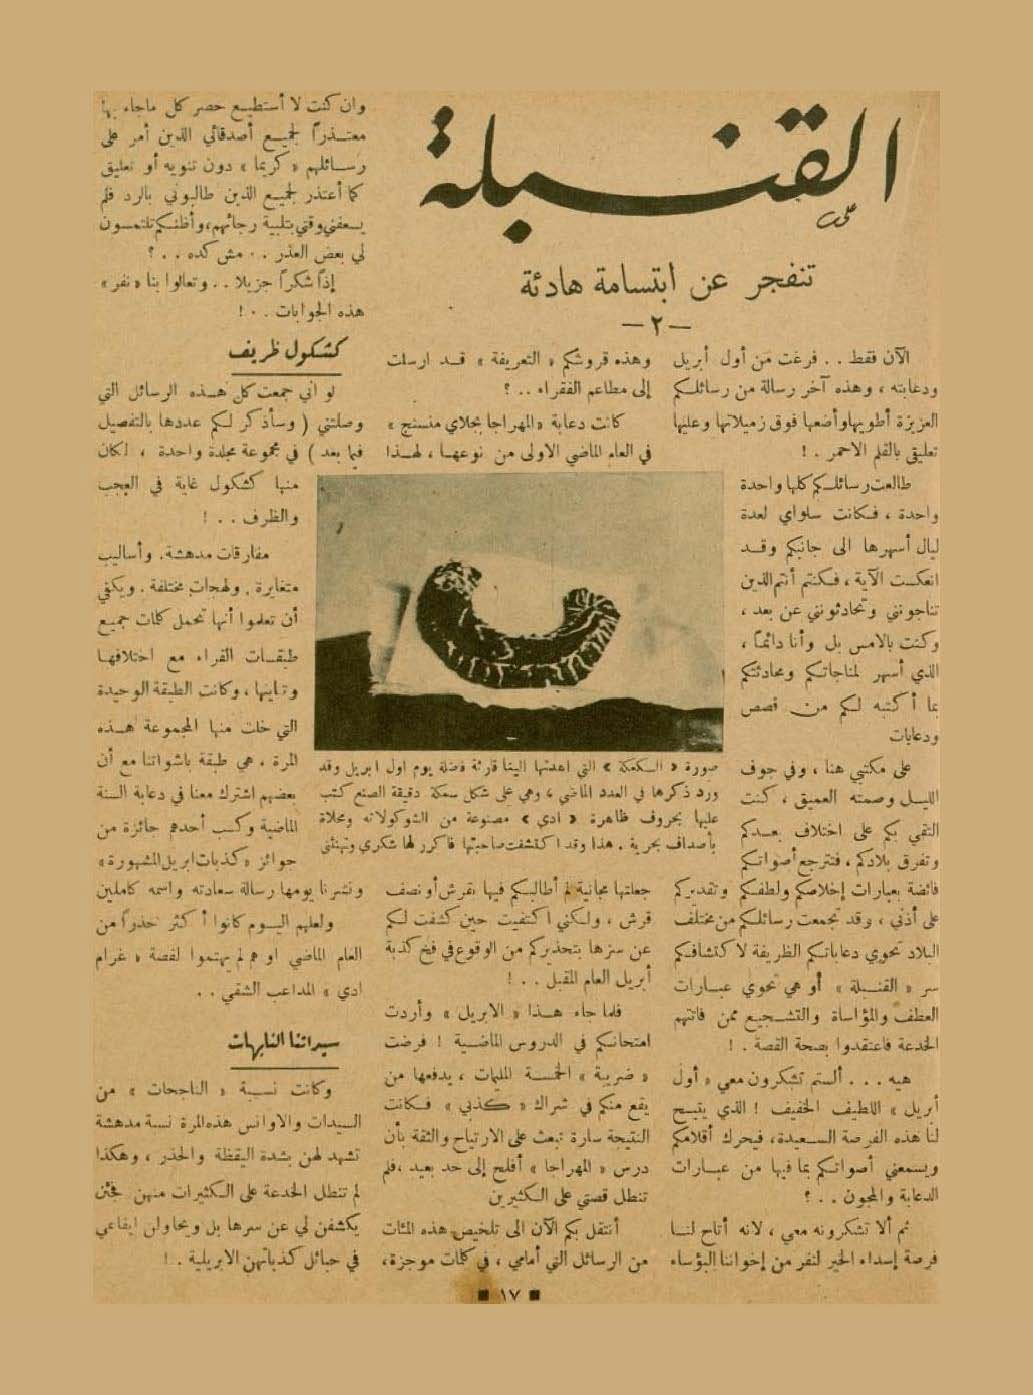 القنبلة
تنفجر عن ابتسامة هادئة
— ٢ —
الآن فقط . . فرغت من أول أبريل
ودعابته ، وهذه آخر رسالة من رسائلكم
العزيزة أطويها وأضعها فوق زميلاتها وعليها
تعليقي بالقلم الاحمر . !
طالعت رسائلكم كلها واحدة
واحدة ، فكانت سلواي لعدة
ليال أسهرها الى جانبكم وقد
انعكست الآية ، فكنتم أنتم الذين
تناجونني وتحادثونني عن بعد ،
وكنت بالامس بل وأنا دائماً ،
الذي أسهر لمناجاتكم ومحادثتكم
بما أكتبه لكم من قصص
ودعابات
على مكتبي هنا ، وفي جوف
الليل وصمته العميق ، كنت
التقي بكم على اختلاف بعدكم
وتفرق بلادكم ، فتترجع أصواتكم
فائضة بعبارات إخلاصكم ولطفكم وتقديركم
على أذني ، وقد تجمعت رسائلكم من مختلف
البلاد تحوي دعاباتكم الظريفة لاكتشافكم
سر « القنبلة » أو هي تحوي عبارات
العطف والمؤاساة والتشجيع ممن فاتتهم
الخدعة فاعتقدوا بصحة القصة . !
هيه . . . ألستم تشكرون معي « أول
أبريل » اللطيف الخفيف ! الذي يتيح
لنا هذه الفرصة السعيدة ، فيحرك أقلامكم
ويسمعني أصواتكم بما فيها من عبارات
الدعابة والمجون . . ؟
ثم ألا تشكرونه معي ، لانه أتاح لنا
فرصة إسداء الخير لنفر من إخواننا البؤساء
وهذه قروشكم « التعريفة » قد ارسلت
إلى مطاعم الفقراء . . ؟
كانت دعابة « المهراجا بجلاي منسنج »
في العام الماضي الاولى من نوعها ، لهذا
صورة « السكعكة » التي اهدتها الينا قارئة فضلة يوم اول ابريل وقد
ورد ذكرها في العدد الماضي ، وهي على شكل سمكة دقيقة الصنع كتب
عليها بحروف ظاهرة « ادي » مصنوعة من الشوكولاته ومحلاة
بأصداف بحرية . هذا وقد اكتشفت صاحبتها فاكرر لها شكري وتهنئتي
جعلتها مجانية لم أطالبكم فيها بقرش أو نصف
قرش ، ولكني اكتفيت حين كشفت لكم
عن سرها بتحذيركم من الوقوع في فخ كذبة
أبريل العام المقبل . . !
فلما جاء هذا « الابريل » وأردت
امتحانكم في الدروس الماضية ! فرضت
« ضريبة » الخمسة المليمات ، يدفعها من
يقع منكم في شراك « كذبتي » فكانت
النتيجة سارة تبعث على الارتياح والثقة بأن
درس « المهراجا » أفلح إلى حد بعيد ، فلم
تنطل قصتي على الكثيرين
أنتقل بكم الآن الى تلخيص هذه المئات
من الرسائل التي أمامي ، في كلمات موجزة ،
وان كنت لا أستطيع حصر كل ماجاء بها
معتذراً لجميع أصدقائي الذين أمر على
رسائلهم « كريما » دون تنويه أو تعليق
كما أعتذر لجميع الذين طالبوني بالرد فلم
يسعفني وقتي بتلبية رجائهم ، وأظنكم تلتمسون
لي بعض العذر . . مش كده . . ؟
إذاً شكراً جزيلا . . وتعالوا بنا « نفر »
هذه الجوابات . . !
كشكول ظريف
لو اني جمعت كل هذه الرسائل التي
وصلتني ( وسأذكر لكم عددها بالتفصيل
فيما بعد ) في مجموعة مجلدة واحدة ، لكان
منها كشكول غاية في العجب
والظرف . . !
مفارقات مدهشة . وأساليب
متغايرة . ولهجات مختلفة . ويكفي
أن تعلموا أنها تحمل كلمات جميع
طبقات القراء مع اختلافها
وتباينها ، وكانت الطبقة الوحيدة
التي خلت منها المجموعة هذه
المرة ، هي طبقة باشواتنا مع أن
بعضهم اشترك معنا في دعابة السنة
الماضية وكسب أحدهم جائزة من
جوائز « كذبات ابريل المشهورة »
ونشرنا يومها رسالة سعادته واسمه كاملين
ولعلهم اليوم كانوا أكثر حذراً من
العام الماضي او هم لم يهتموا لقصة « غرام
ادي » المداعب الشقي . .
سيداتنا النابهات
وكانت نسبة « الناجحات » من
السيدات والاوانس هذه المرة نسبة مدهشة
تشهد لهن بشدة اليقظة والحذر ، وهكذا
لم تنطل الخدعة على الكثيرات منهن فجئن
يكشفن لي عن سرها بل ويحاولن ايقاعي
في حبائل كذباتهن الابريلية . . !
١٧